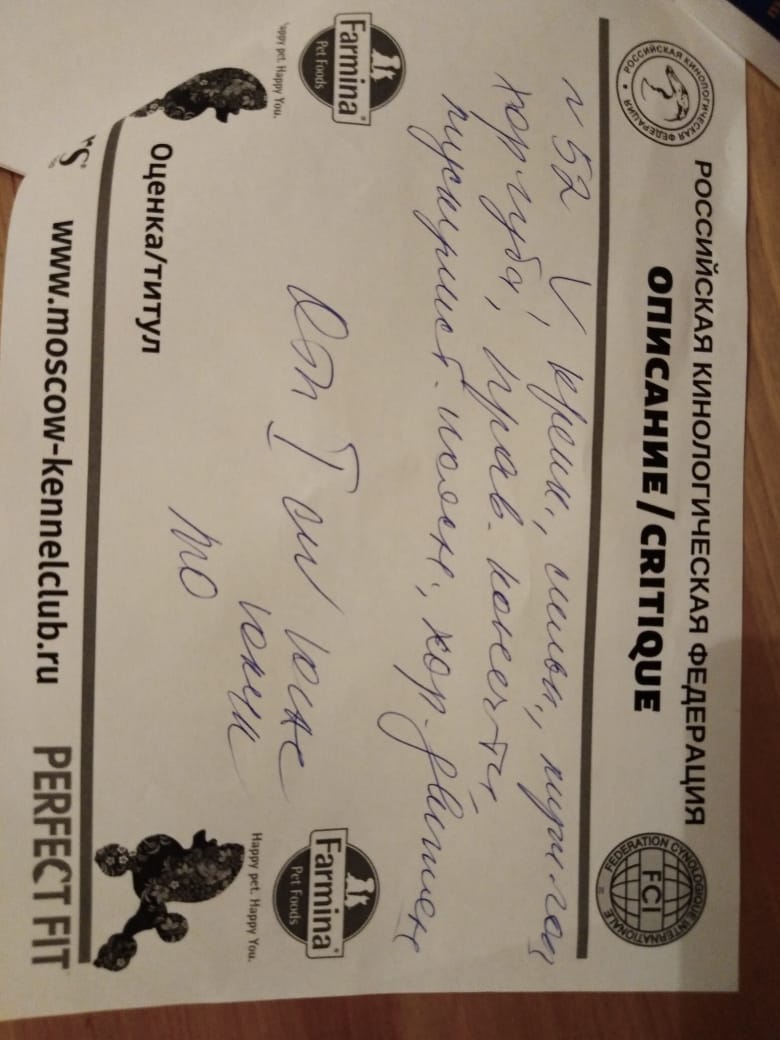 РОССИЙСКАЯ КИНОЛОГИЧЕСКАЯ ФЕДЕРАЦИЯ
ОПИСАНИЕ/CRITIQUE
РОССИЙСКАЯ КИНОЛОГИЧЕСКАЯ ФЕДЕРАЦИЯ
FEDERATION CYNOLOGIQUE INTERNATIONALE
FCI
N 52 V, крепк., сильн.,
хор. зубы, прав. конечн.,
мускулист. поясн., хор. движен
Отл I CW ЮКЧК
ЮПЧК
Farmina
Pet Foods
appy pet. Happy You.
Farmina
Pet Foods
Happy pet. Happy You.
Оценка/титул
www.moscow-kennelclub.ru PERFECT FIT